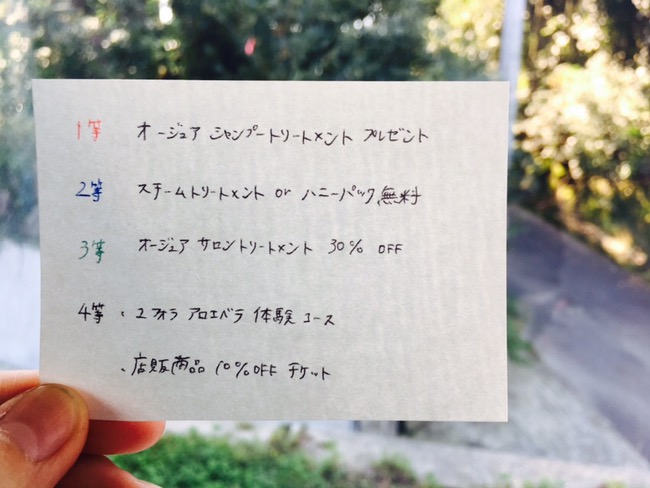 1等 オージュア シャンプートリートメント プレゼント
2等 スチームトリートメント or ハニーパック 無料
3等 オージュア サロントリートメント 30% OFF
4等 ・ユフォラ アロエベラ 体験コース
・店販商品 10%OFF チケット